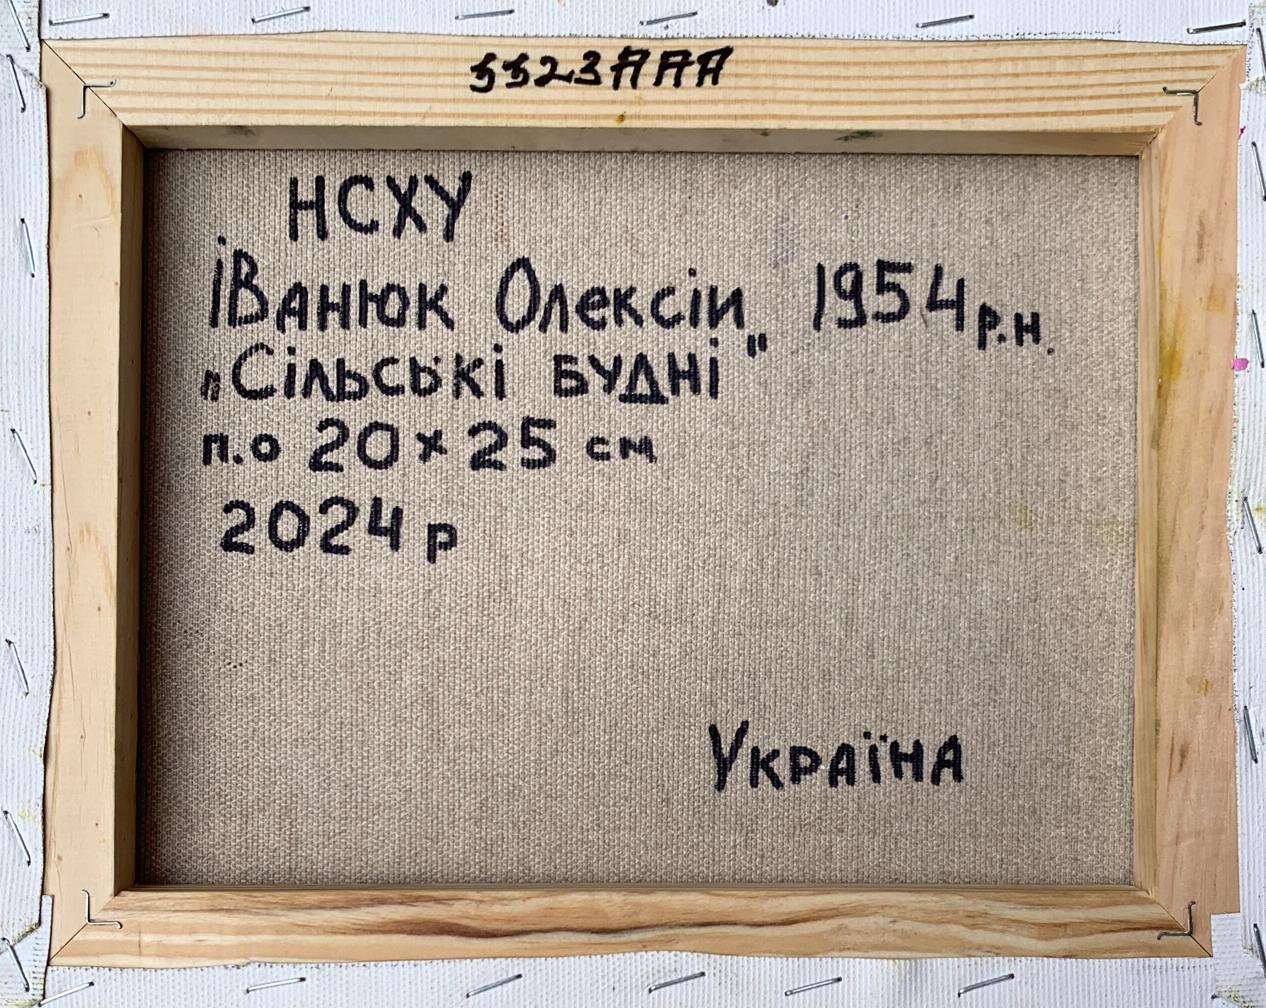 5523AAA
НСХУ
іВанюк Олексій 1954 р.н.
„Сільські будні"
п.о 20 x 25 см
2024 р
Україна